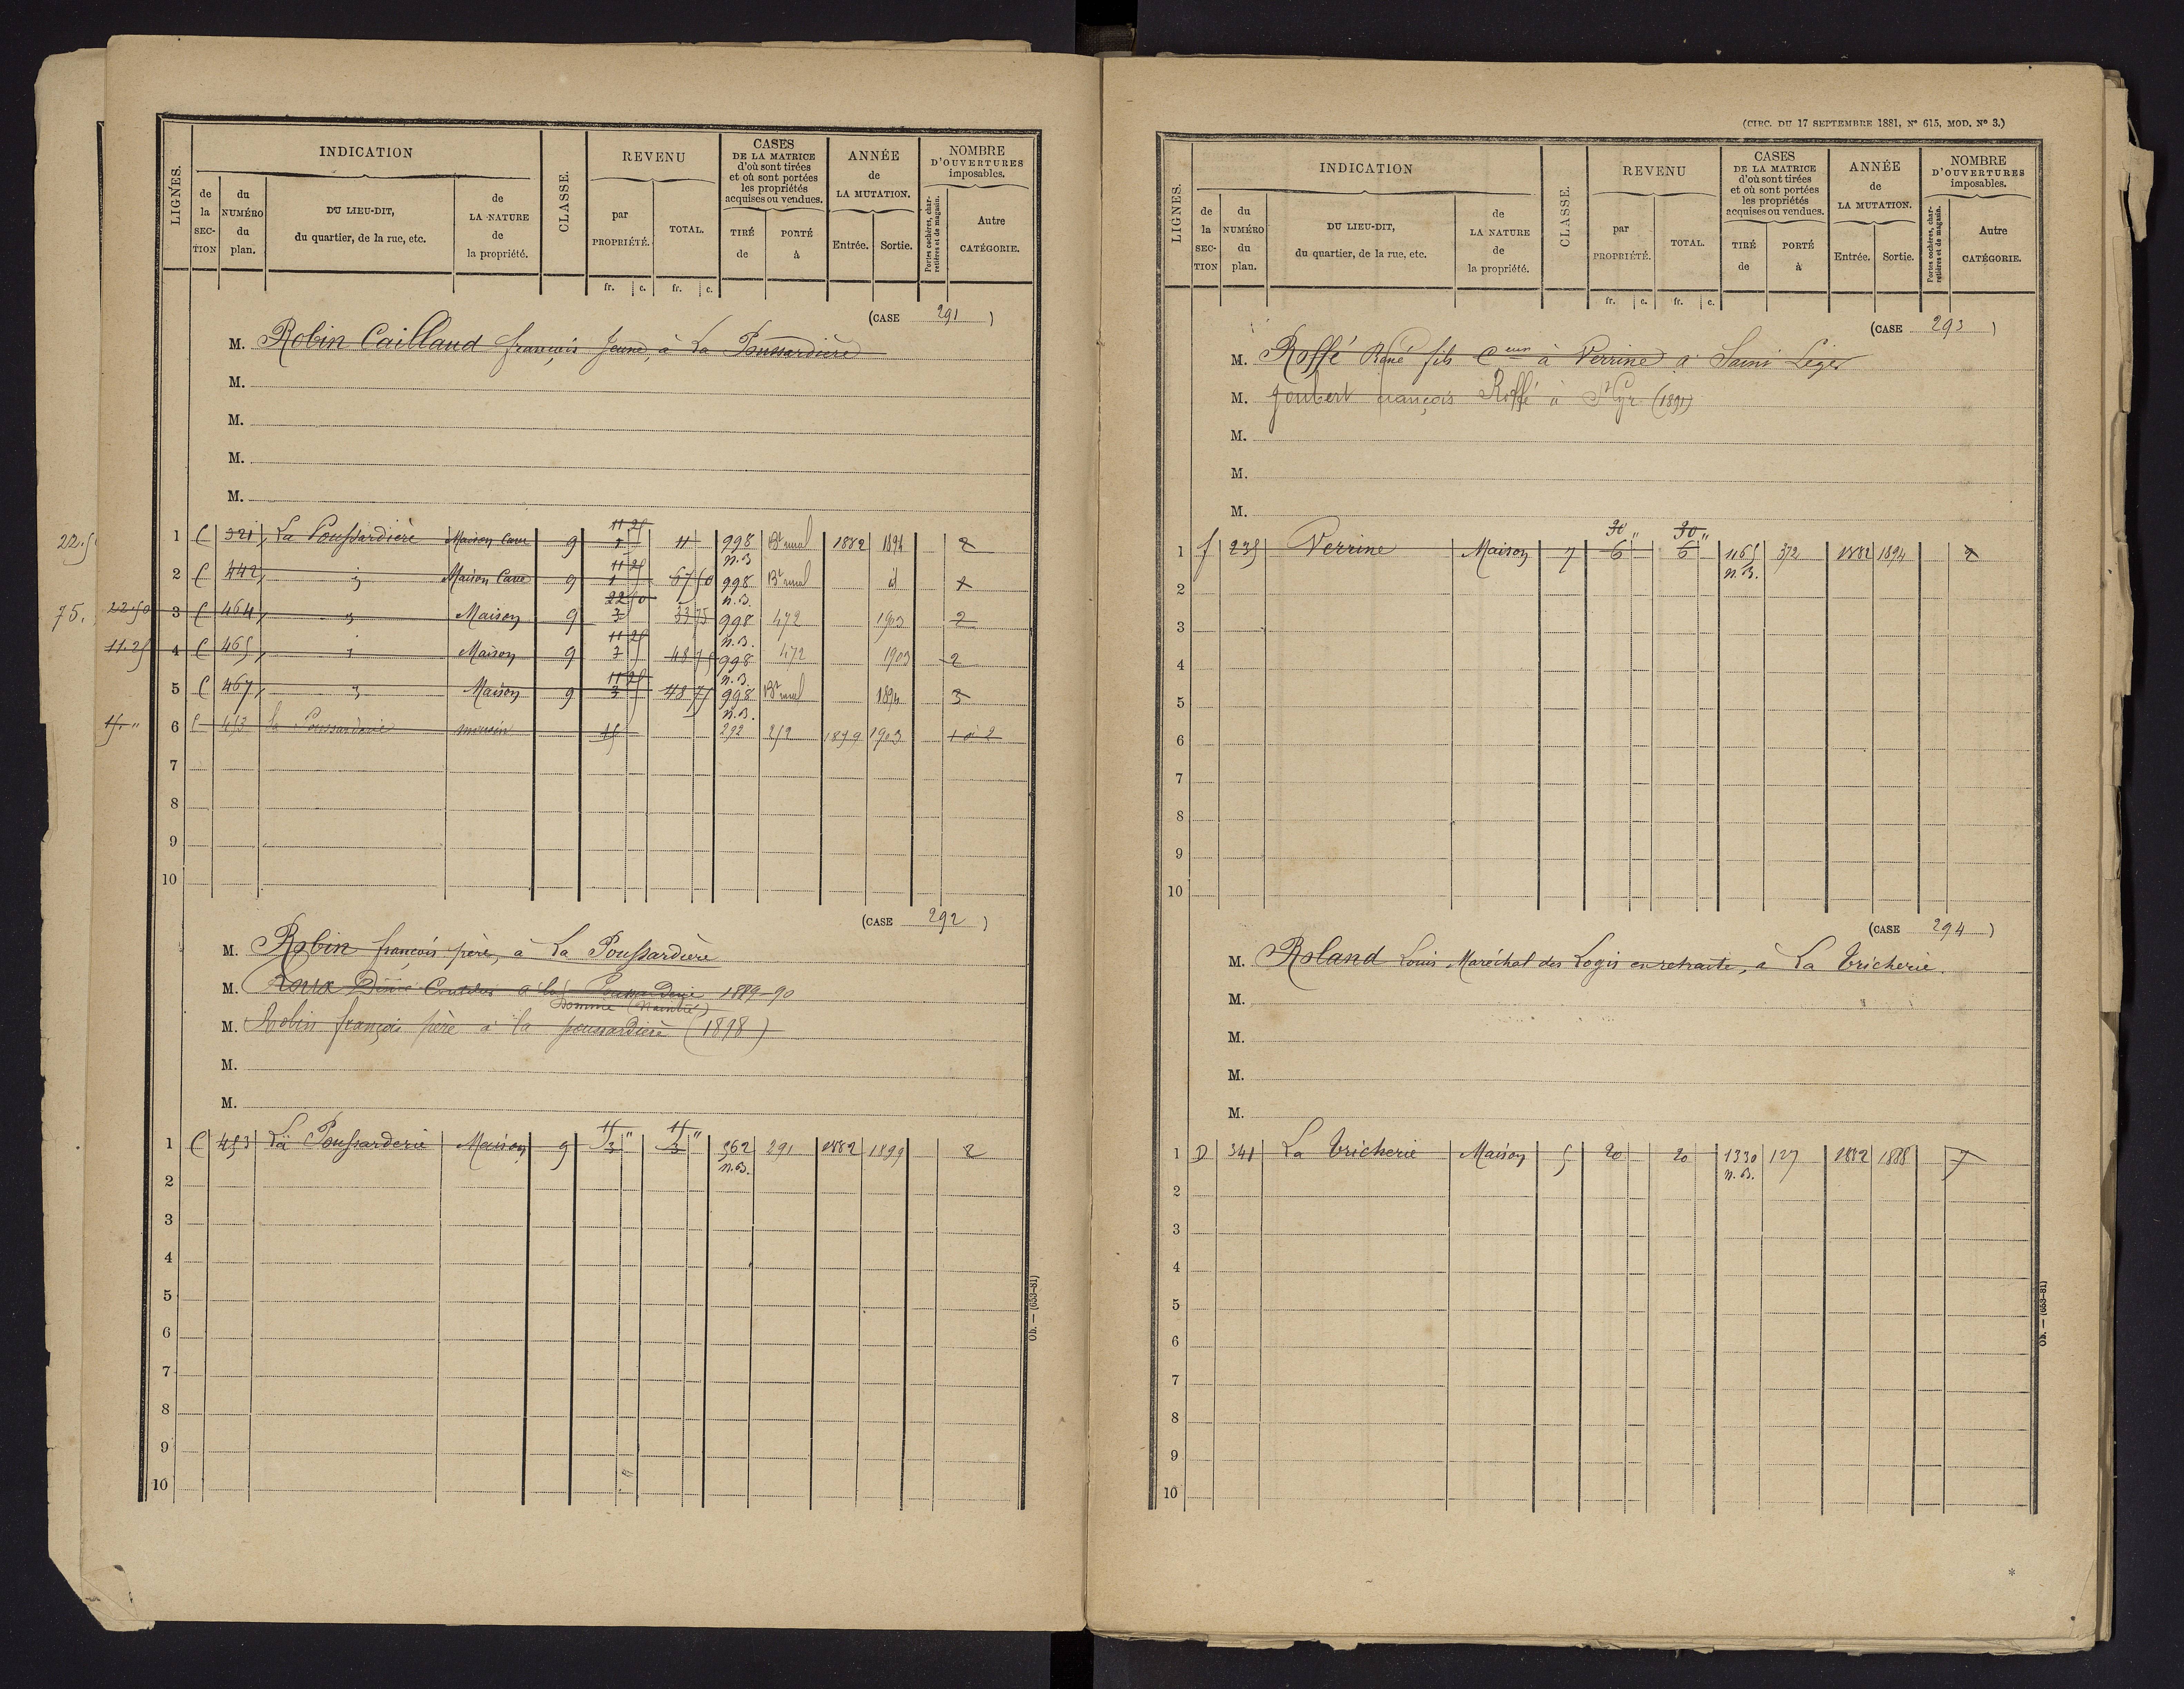 LIGNES.
INDICATION
de la SECTION
du NUMÉRO du plan.
DU LIEU-DIT, du quartier, de la rue, etc.
de LA NATURE de la propriété.
CLASSE.
REVENU
par PROPRIÉTÉ.
TOTAL.
CASES DE LA MATRICE d'où sont tirées et où sont portées les propriétés acquises ou vendues.
TIRÉ de
PORTÉ à
ANNÉE de LA MUTATION.
Entrée.
Sortie.
NOMBRE D'OUVERTURES imposables.
Portes cochères, charretières et de magasin.
Autre CATÉGORIE.
fr. c. fr. c.
(CASE 291)
M. Robin Caillaud françois Jeune, à La Poussardière
M.
M.
M.
M.
11 25
22.5
1 C 321 La Poussardière Maison Cave 9 11 998 Bt rural 1882 1894 2
n.B.
11 25
2 C 442 Maison Cave 9 1 67 50 998 Bt rural d 1
n.B.
22 50
75. 22.50 3 C 464 Maison 9 3 33 75 998 472 1903 2
n.B.
11 25
11.25 4 C 465 Maison 9 3 48 75 998 472 1903 2
n.B.
11 25
5 C 467 Maison 9 3 48 75 998 Bt rural 1894 3
n.B.
15 " 6 C 453 la Poussarderie maison 15 292 252 1899 1903 2
7
8
9
10
(CASE 292)
M. Robin françois père, à La Poussardière
M. Roux à la 1889-90
(Naintré)
M. Robin françois père à la poussardière (1898)
M.
M.
15 " 15 "
1 C 453 La Poussarderie Maison 9 3 3 962 291 1882 1899 2
n.B.
2
3
4
5
6
7
8
9
10
Ob. — (653-81)
(CIRC. DU 17 SEPTEMBRE 1881, N° 615, MOD. N° 3.)
LIGNES.
INDICATION
de la SECTION
du NUMÉRO du plan.
DU LIEU-DIT, du quartier, de la rue, etc.
de LA NATURE de la propriété.
CLASSE.
REVENU
par PROPRIÉTÉ.
TOTAL.
CASES DE LA MATRICE d'où sont tirées et où sont portées les propriétés acquises ou vendues.
TIRÉ de
PORTÉ à
ANNÉE de LA MUTATION.
Entrée.
Sortie.
NOMBRE D'OUVERTURES imposables.
Portes cochères, charretières et de magasin.
Autre CATÉGORIE.
fr. c. fr. c.
(CASE 293)
M. Roffé René fils à Verrine à Saint Léger
M. Joubert françois Roffé à St Cyr (1891)
M.
M.
M.
30 " 30 "
1 f 235 Verrine Maison 7 6 6 1165 372 1882 1894 2
n.B.
2
3
4
5
6
7
8
9
10
(CASE 294)
M. Roland Louis Maréchal des Logis en retraite, à La Tricherie.
M.
M.
M.
M.
1 D 341 La Tricherie Maison 5 20 20 1330 127 1882 1888 7
n.B.
2
3
4
5
6
7
8
9
10
Ob. — (653-81)